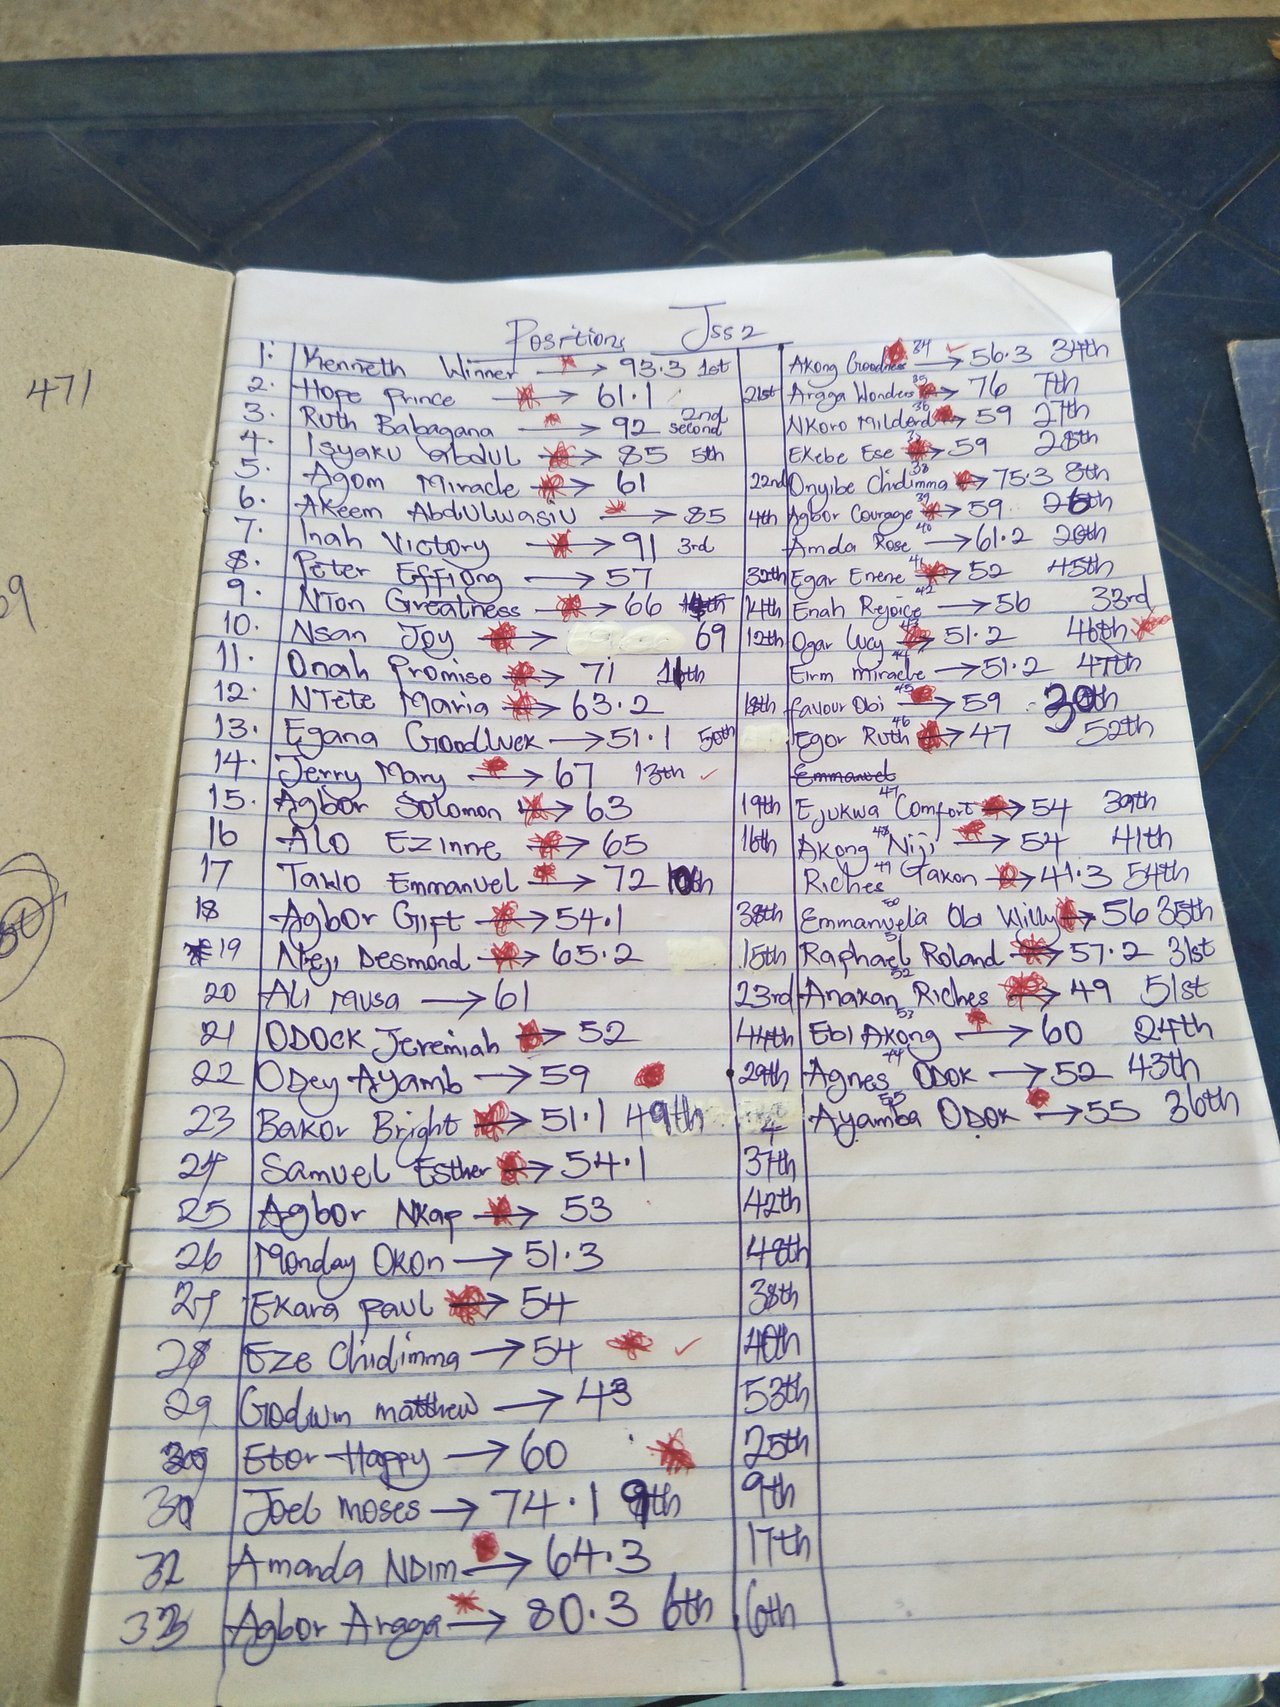 471
Positions Jss2
1. Kenneth Winner → 93.3 1st
2. Hope Prince → 61.1 21st
3. Ruth Babagana → 92 2nd second
4. Isyaku abdul → 85 5th
5. Agom Miracle → 61 22nd
6. AKeem Abdulwasiu → 85 4th
7. Inah Victory → 91 3rd
8. Peter Effiong → 57 32th
9. NTon Greatness → 66 14th
10. Nsan Joy → 69 12th
11. Onah Promise → 71 11th
12. NTete Maria → 63.2 18th
13. Egana Goodluck → 51.1 50th
14. Jerry Mary → 67 13th ✓
15. Agbor Solomon → 63 19th
16 ALO Ezinne → 65 16th
17 Tawo Emmanuel → 72 10th
18 Agbor Gift → 54.1 38th
19 Nteji Desmond → 65.2 15th
20 Ali Musa → 61 23rd
21 ODOCK Jeremiah → 52 44th
22 ODey Ayamb → 59 29th
23 Bakor Bright → 51.1 49th
24 Samuel Esther → 54.1 37th
25 Agbor Nkap → 53 42th
26 Monday Okon → 51.3 48th
27 Ekara paul → 54 38th
28 Eze Chidimma → 54 ✓ 40th
29 Godwin matthew → 43 53th
30 Etor Happy → 60 25th
Joel moses → 74.1 9th 9th
32 Amanda NDim → 64.3 17th
33 Agbor Aragga → 80.3 6th 6th
34 Akong Goodness ✓ → 56.3 34th
35 Aragga Wonders → 76 7th
36 NKoro Mildord → 59 27th
37 Ekebe Ese → 59 28th
38 Onyibe Chidimma → 75.3 8th
39 Agbor Courage → 59 26th
40 Amda Rose → 61.2 20th
41 Egar Enene → 52 45th
42 Enah Rejoice → 56 33rd
43 Ogar Lucy → 51.2 46th
44 Eirm miracle → 51.2 47th
45 favour Obi → 59 30th
46 Egor Ruth → 47 52th
Emmanuel
47 Ejukwa Comfort → 54 39th
48 Akong Niji → 54 41th
49 Riches Takon → 41.3 54th
50 Emmanuela Obi Willy → 56 35th
51 Raphael Roland → 57.2 31st
52 Anakan Riches → 49 51st
53 Ebi Akong → 60 24th
Agnes ODOK → 52 43th
55 Ayamba ODOK → 55 36th